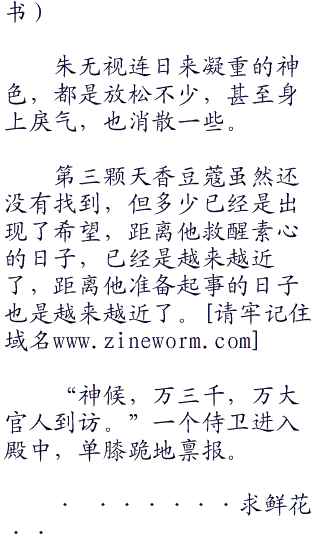 书）
朱无视连日来凝重的神
色，都是放松不少，甚至身
上戾气，也消散一些。
第三颗天香豆蔻虽然还
没有找到，但多少已经是出
现了希望，距离他救醒素心
的日子，已经是越来越近
了，距离他准备起事的日子
也是越来越近了。[请牢记住
域名www.zineworm.com]
“神候，万三千，万大
官人到访。”一个侍卫进入
殿中，单膝跪地禀报。
· · · · · · · ·求鲜花
· ·